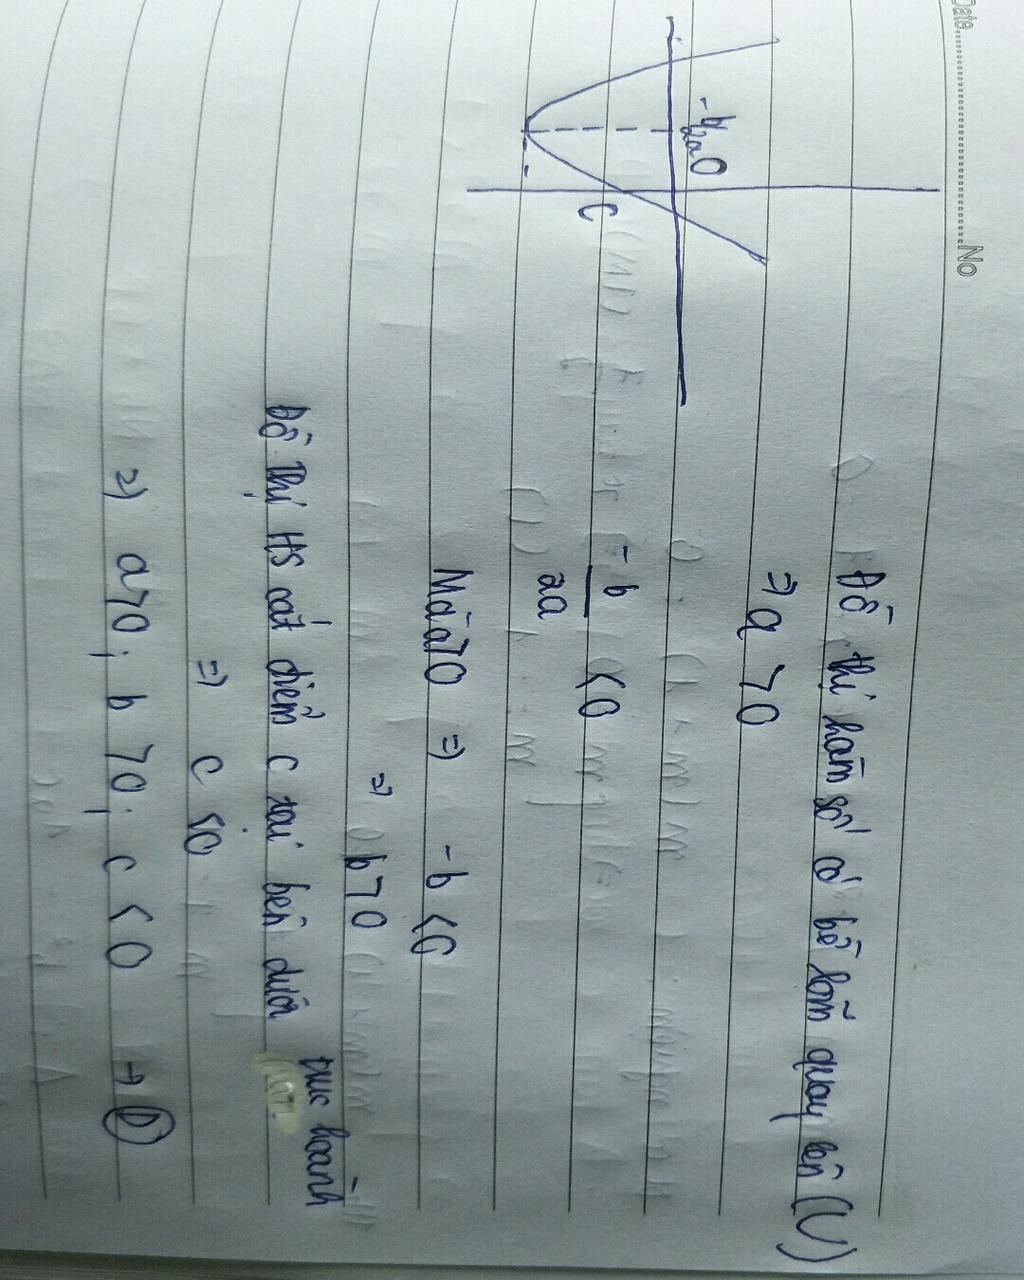 Date.........................No
-b/2a O
C
Đồ thị hàm số có bề lõm quay lên (U)
=> a > 0
-b/2a < 0
Mà a > 0 => -b < 0
=> b > 0
Đồ thị HS cắt điểm c tại bên dưới trục hoành
=> c < 0
=> a > 0; b > 0; c < 0 → D